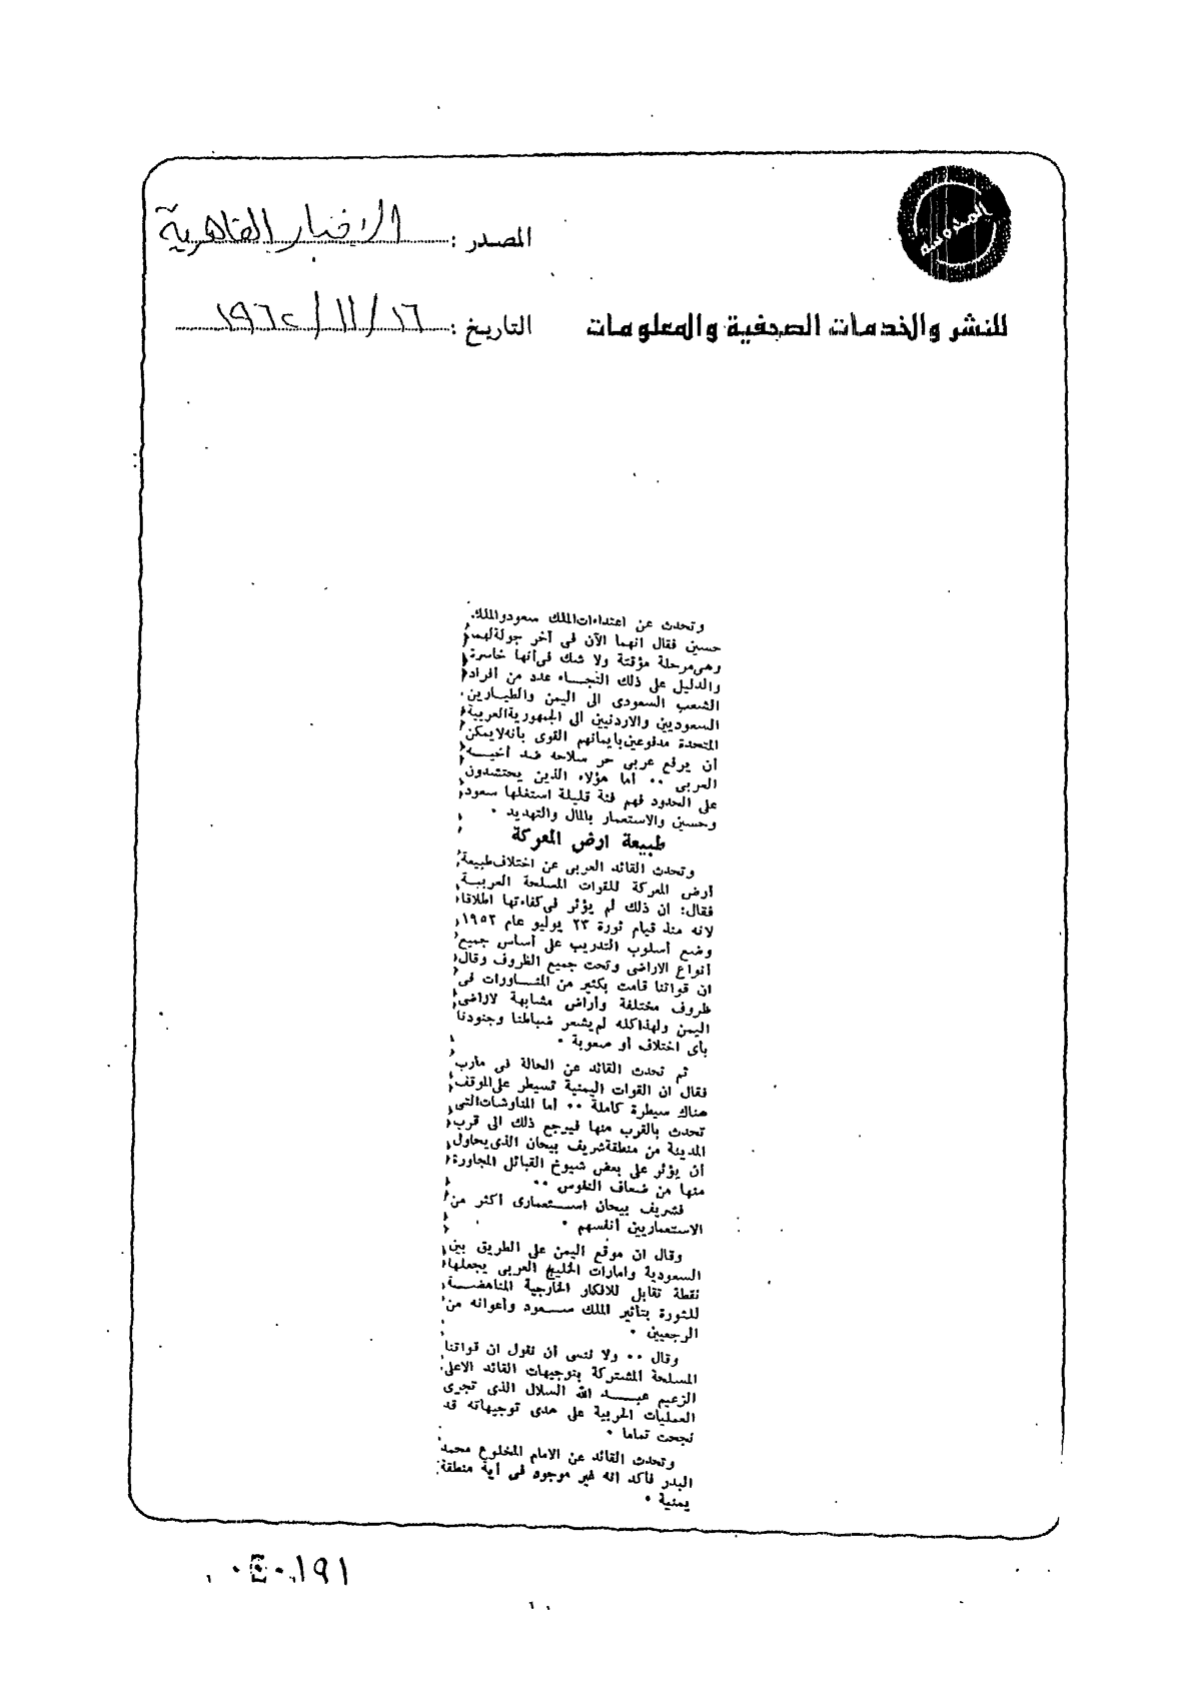 المصدر : الاخبار القاهرية
للنشر والخدمات الصحفية والمعلومات
التاريخ : ١٦/١١/١٩٦٢
وتحدث عن اعتداءات الملك سعود والملك
حسين فقال انهما الآن فى آخر جولة لهما
وهى مرحلة مؤقتة ولا شك فى أنها خاسرة
والدليل على ذلك التجاء عدد من أفراد
الشعب السعودى الى اليمن والطيارين
السعوديين والاردنيين الى الجمهورية العربية
المتحدة مدفوعين بايمانهم القوى بأنه لا يمكن
أن يرفع عربى حر سلاحه ضد أخيه
العربى .. أما هؤلاء الذين يحتشدون
على الحدود فهم فئة قليلة استغلها سعود
وحسين والاستعمار بالمال والتهديد .
طبيعة ارض المعركة
وتحدث القائد العربى عن اختلاف طبيعة
أرض المعركة للقوات المسلحة العربية
فقال: ان ذلك لم يؤثر فى كفاءتها اطلاقا
لانه منذ قيام ثورة ٢٣ يوليو عام ١٩٥٢
وضع أسلوب التدريب على أساس جميع
أنواع الاراضى وتحت جميع الظروف وقال
ان قواتنا قامت بكثير من المناورات فى
ظروف مختلفة وأراض مشابهة لاراضى
اليمن ولهذا كله لم يشعر ضباطنا وجنودنا
بأى اختلاف أو صعوبة .
ثم تحدث القائد عن الحالة فى مأرب
فقال ان القوات اليمنية تسيطر على الموقف
هناك سيطرة كاملة .. أما المناوشات التى
تحدث بالقرب منها فيرجع ذلك الى قرب
المدينة من منطقة شريف بيحان الذى يحاول
أن يؤثر على بعض شيوخ القبائل المجاورة
منها من ضعاف النفوس ..
فشريف بيحان استعمارى أكثر من
الاستعماريين أنفسهم .
وقال ان موقع اليمن على الطريق بين
السعودية وامارات الخليج العربى يجعلها
نقطة تقابل للافكار الخارجية المناهضة
للثورة بتأثير الملك سعود وأعوانه من
الرجعيين .
وقال .. ولا ننسى أن نقول ان قواتنا
المسلحة المشتركة بتوجيهات القائد الاعلى
الزعيم عبد الله السلال الذى تجرى
العمليات الحربية على هدى توجيهاته قد
نجحت تماما .
وتحدث القائد عن الامام المخلوع محمد
البدر فأكد انه غير موجود فى أية منطقة
يمنية .